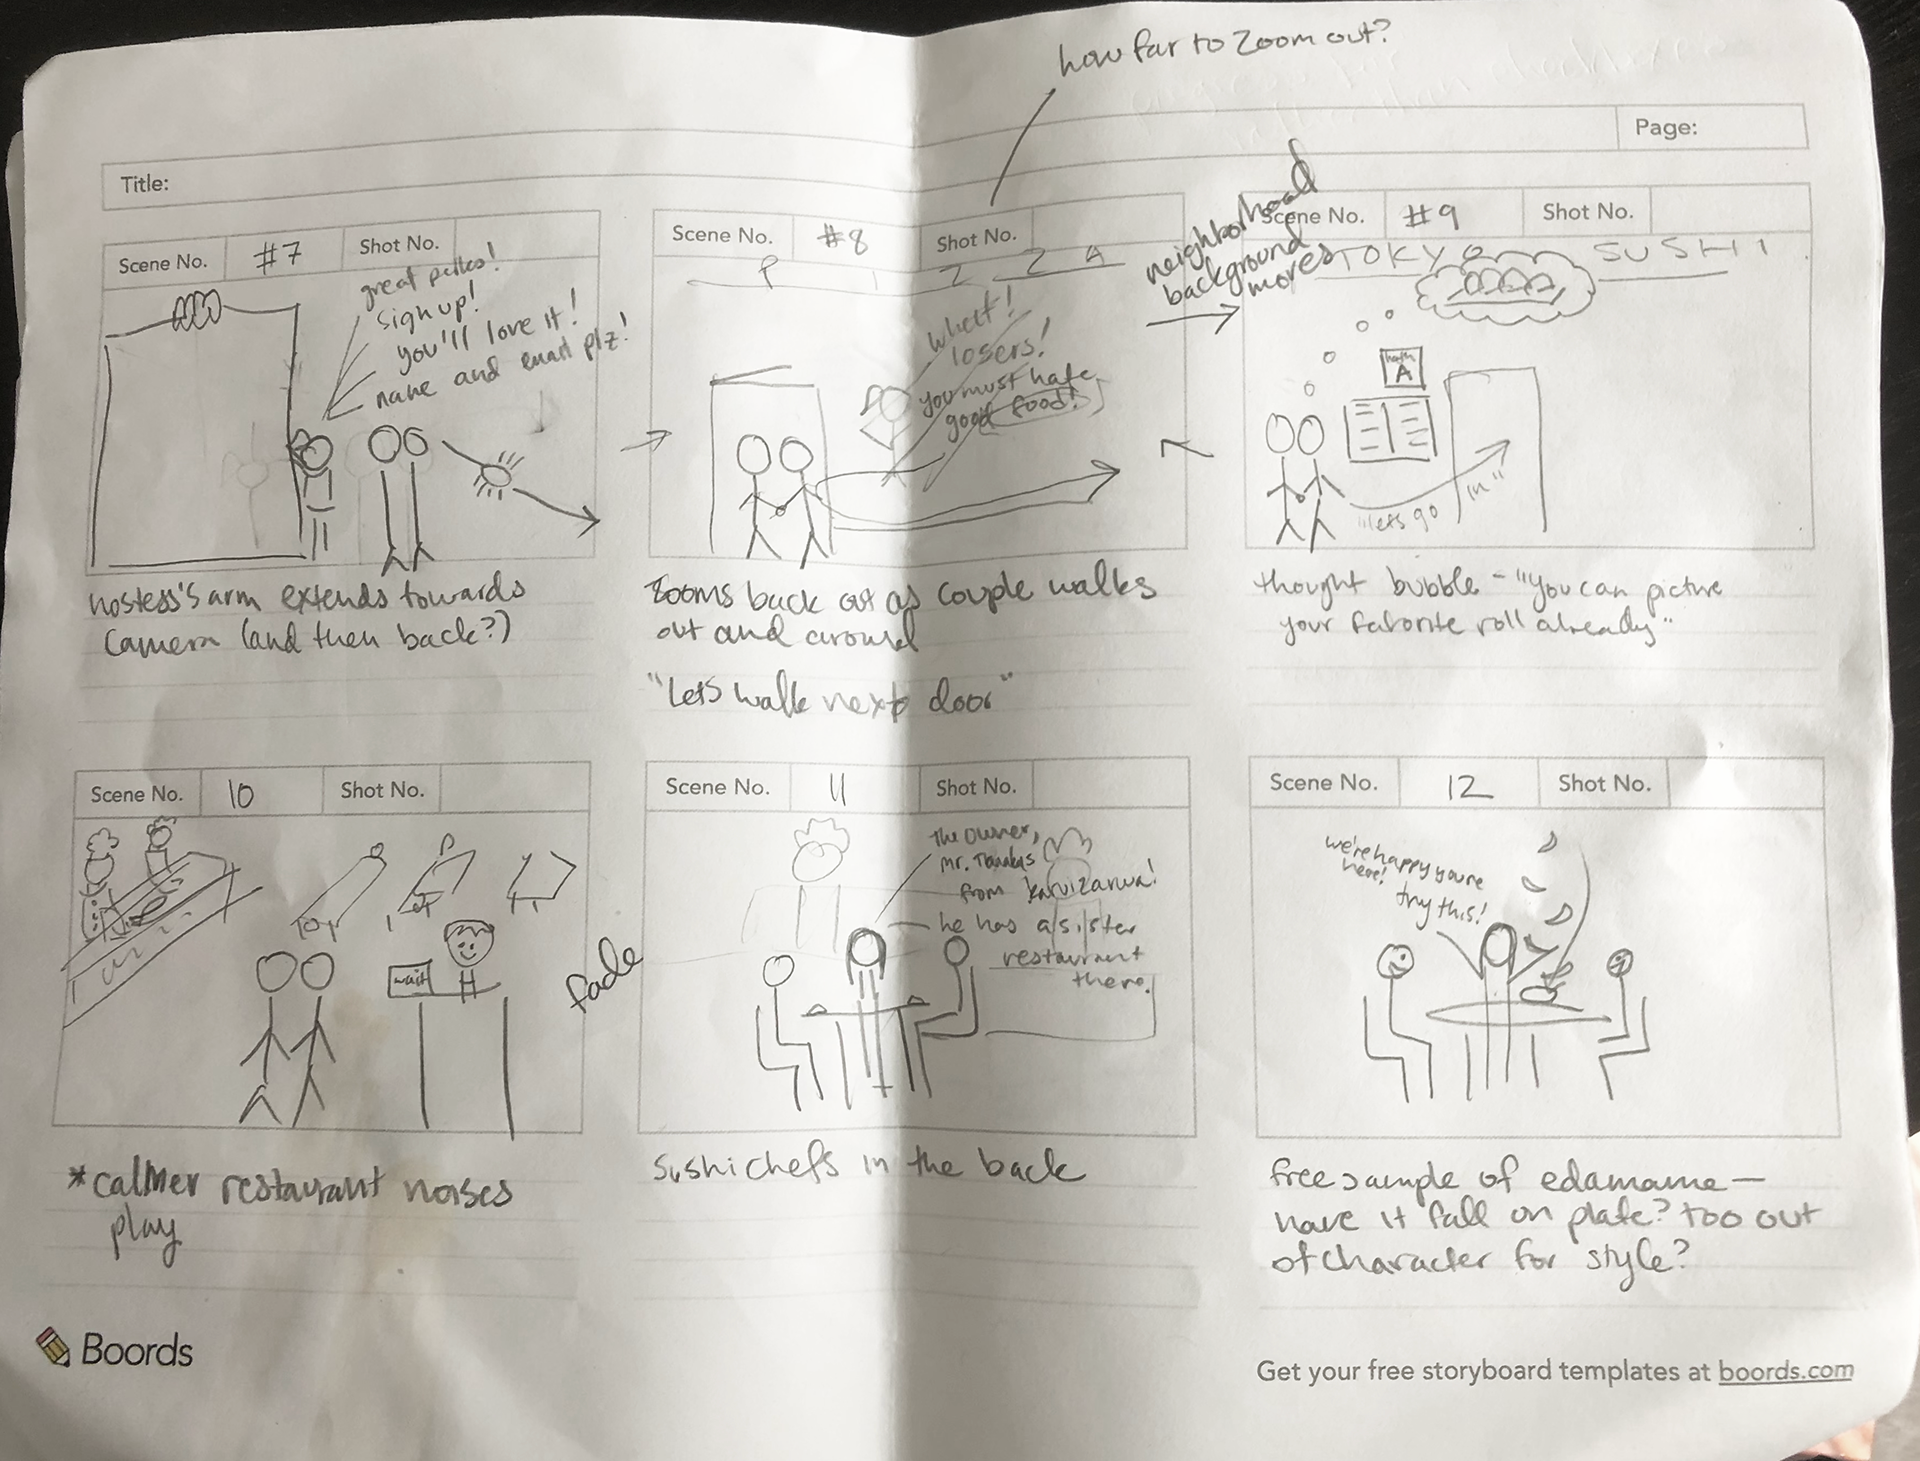 how far to zoom out?
Page:
Title:
Scene No. #7 Shot No.
great perks!
sign up!
you'll love it!
name and email plz!
hostess's arm extends towards
camera (and then back?)
Scene No. #8 Shot No.
P I Z Z A
what!
losers!
you must hate
good food!
zooms back out as couple walks
out and around
"Lets walk next door"
neighborhood
background
moves
Scene No. #9 Shot No.
TOKYO SUSHI
A
"lets go in"
thought bubble - "you can picture
your favorite roll already"
Scene No. 10 Shot No.
wait
fade
*calmer restaurant noises
play
Scene No. 11 Shot No.
the owner,
Mr. Tanaka's
from karuizawa!
he has a sister
restaurant
there.
Sushi chefs in the back
Scene No. 12 Shot No.
we're happy you're
here!
try this!
free sample of edamame—
have it fall on plate? too out
of character for style?
Boords
Get your free storyboard templates at boords.com